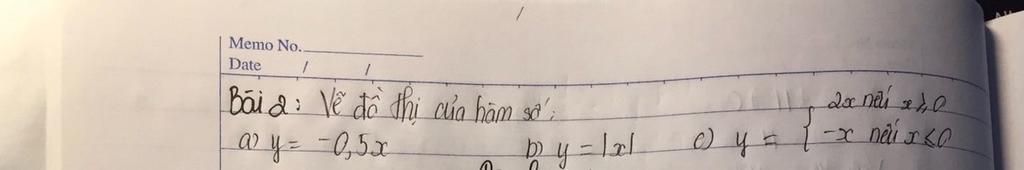 Memo No.
Date / /
Bài 2: Vẽ đồ thị của hàm số:
a) y = -0,5x b) y = |x| c) y = { 2x nếu x ≥ 0
-x nếu x ≤ 0